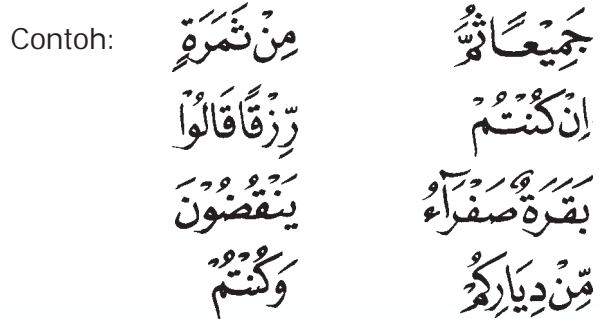 Contoh: جَمِيْعًا ثُمَّ مِنْ ثَمَرَةٍ
اِنْ كُنْتُمْ رِّزْقًا قَالُوْا
بَقَرَةٌ صَفْرَآءُ يَنْقُضُوْنَ
مِّنْ دِيَارِكُمْ وَكُنْتُمْ